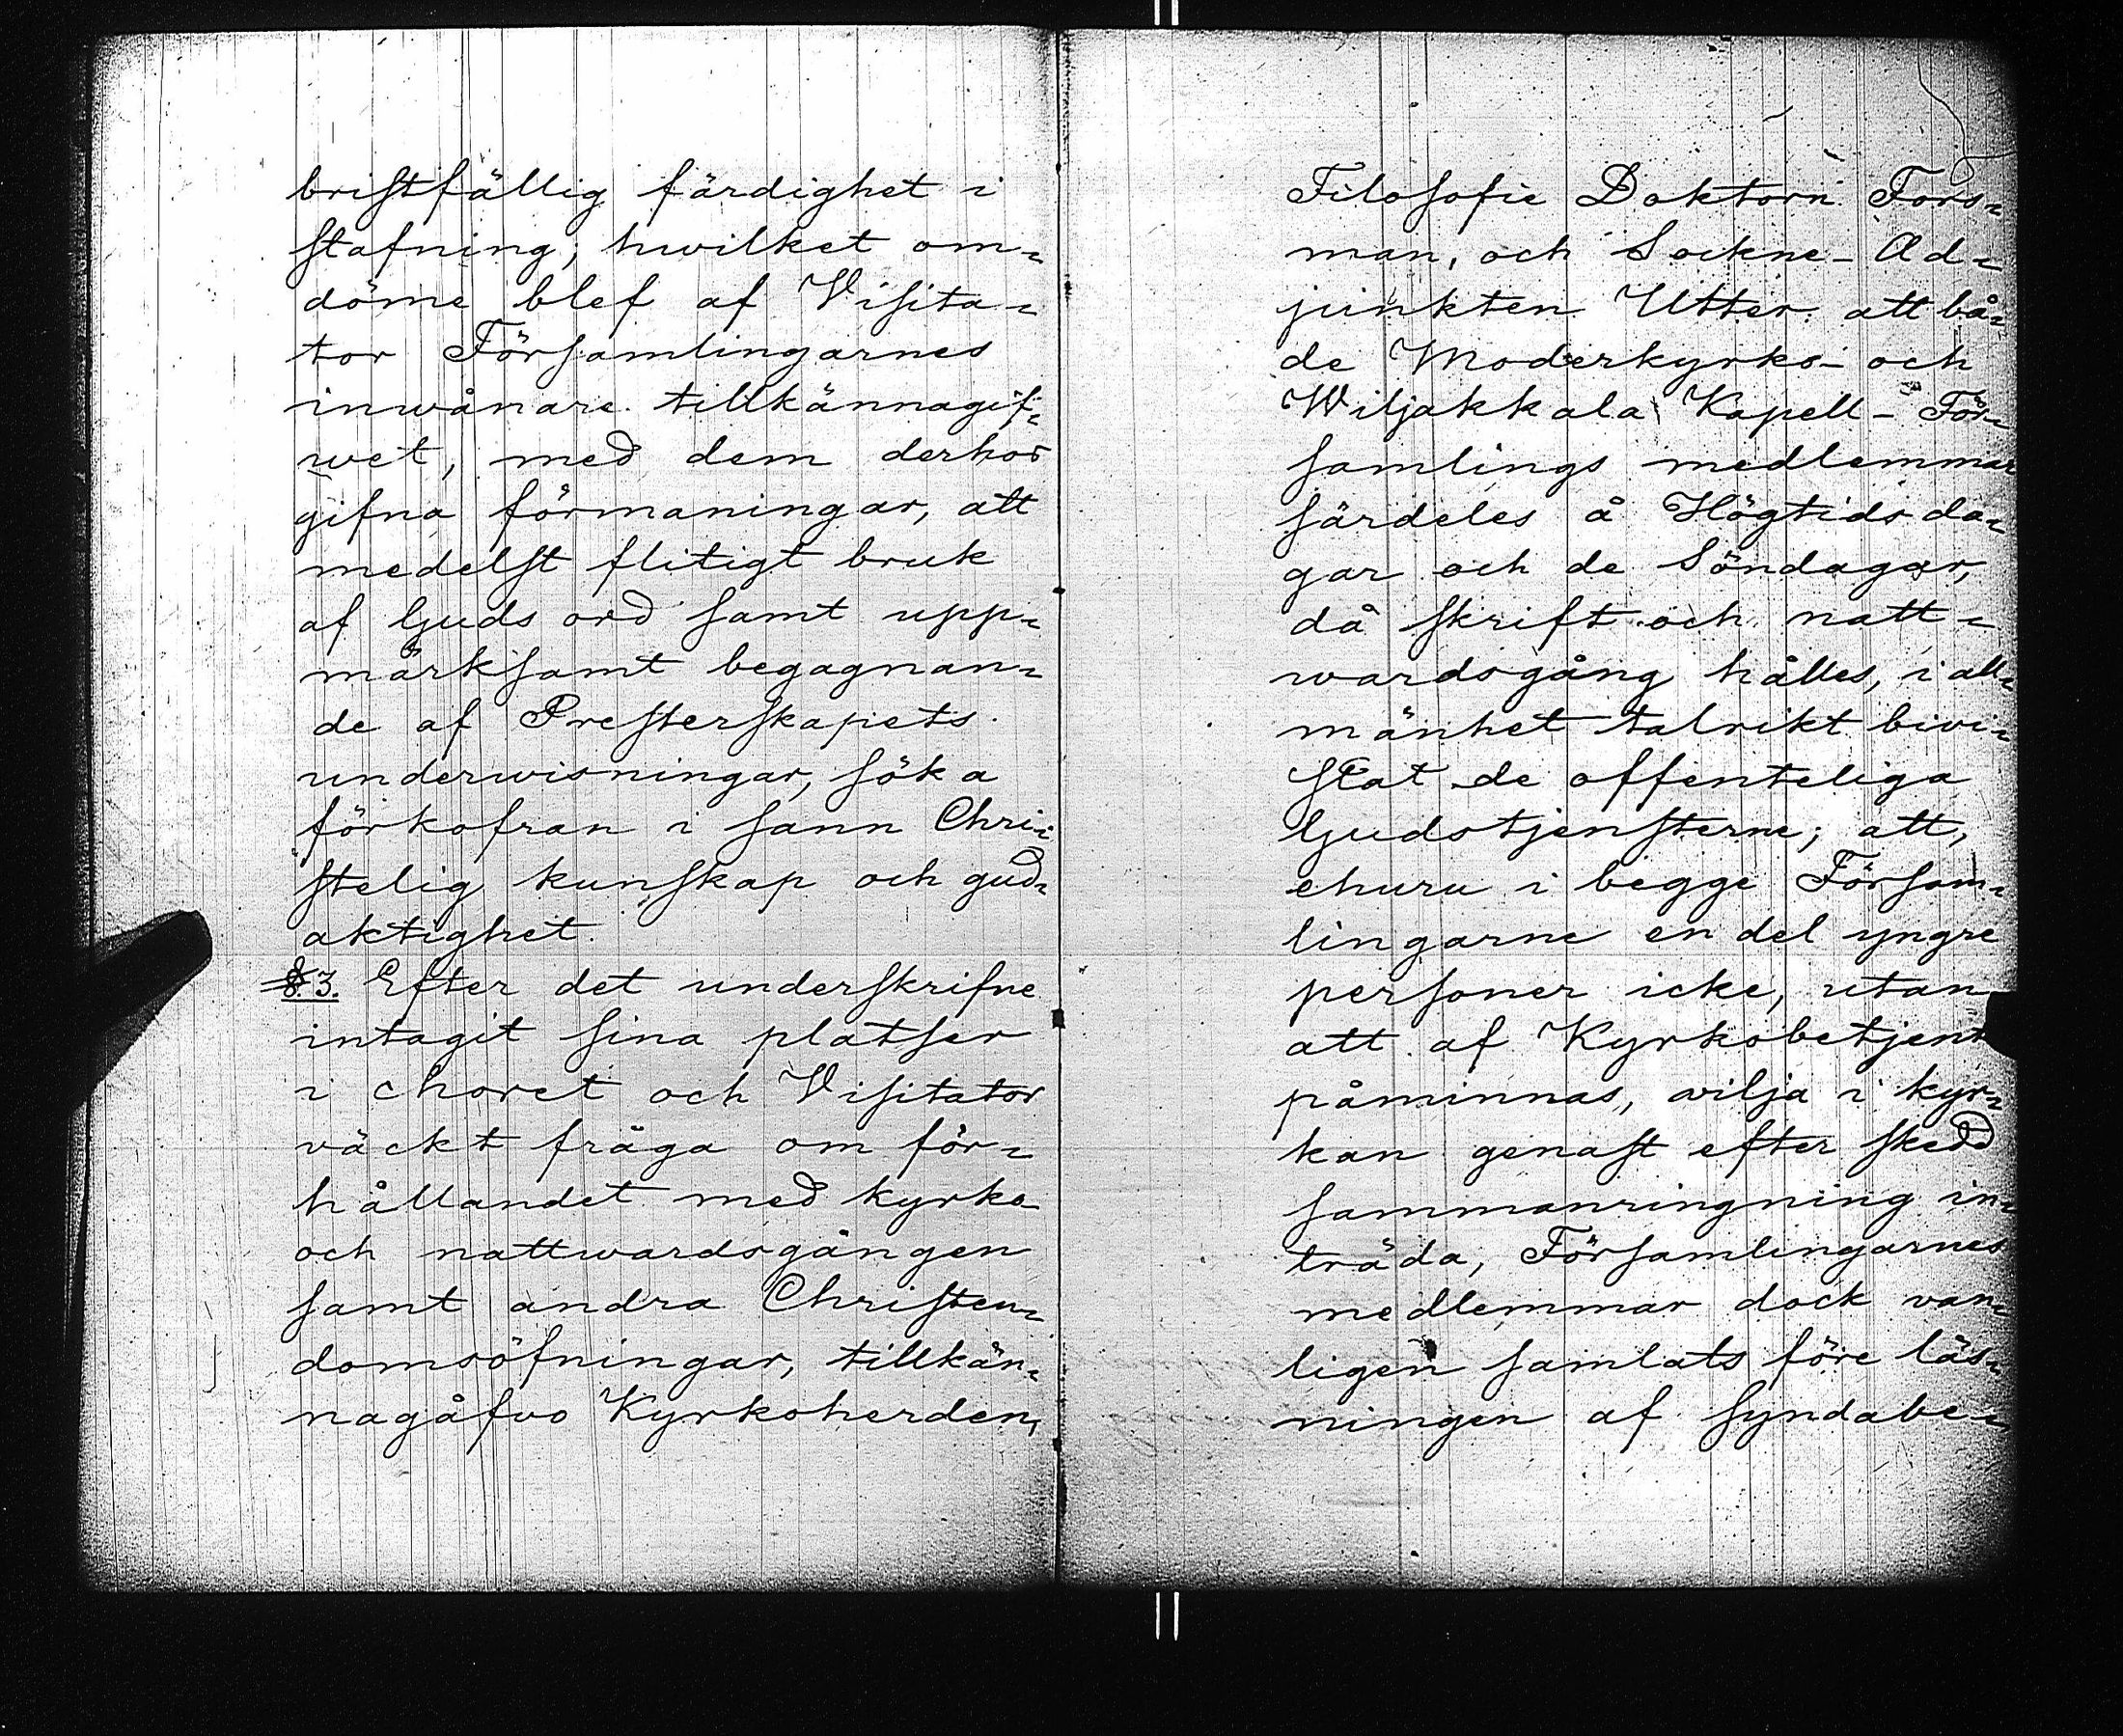 bristfällig färdighet i
stafning; hwilket om-
döme blef af Visita-
tor Församlingarnes
inwånare tillkännagif-
wet, med dem derhos
gifna förmaningar, att
medelst flitigt bruk
af Guds ord samt upp-
märksamt begagnan-
de af Presterskapets
underwisningar, söka
förkofran i sann Chri-
stelig kunskap och gud-
aktighet.
§ 3. Efter det underskrifne
intagit sina platser
i choret och Visitator
väckt fråga om för-
hållandet med kyrko-
och nattwardsgången
samt andra Christen-
domsöfningar, tillkän-
nagåfvo Kyrkoherden,
Filosofie Doktorn Fors-
man, och Sockne-Ad-
junkten Utter att bå-
de Moderkyrko- och
Wiljakkala Kapell-För-
samlings medlemmar
särdeles å Högtidsda-
gar och de Söndagar,
då skrift och natt-
wardsgång hålles, i all-
mänhet talrikt bivi-
stat de offenteliga
Gudstjensterne; att,
ehuru i begge Försam-
lingarne en del yngre
personer icke, utan
att af Kyrkobetjent
påminnas, vilja i kyr-
kan genast efter skedd
sammanringning in-
träda, Församlingarnes
medlemmar dock van-
ligen samlats före läs-
ningen af syndabe-